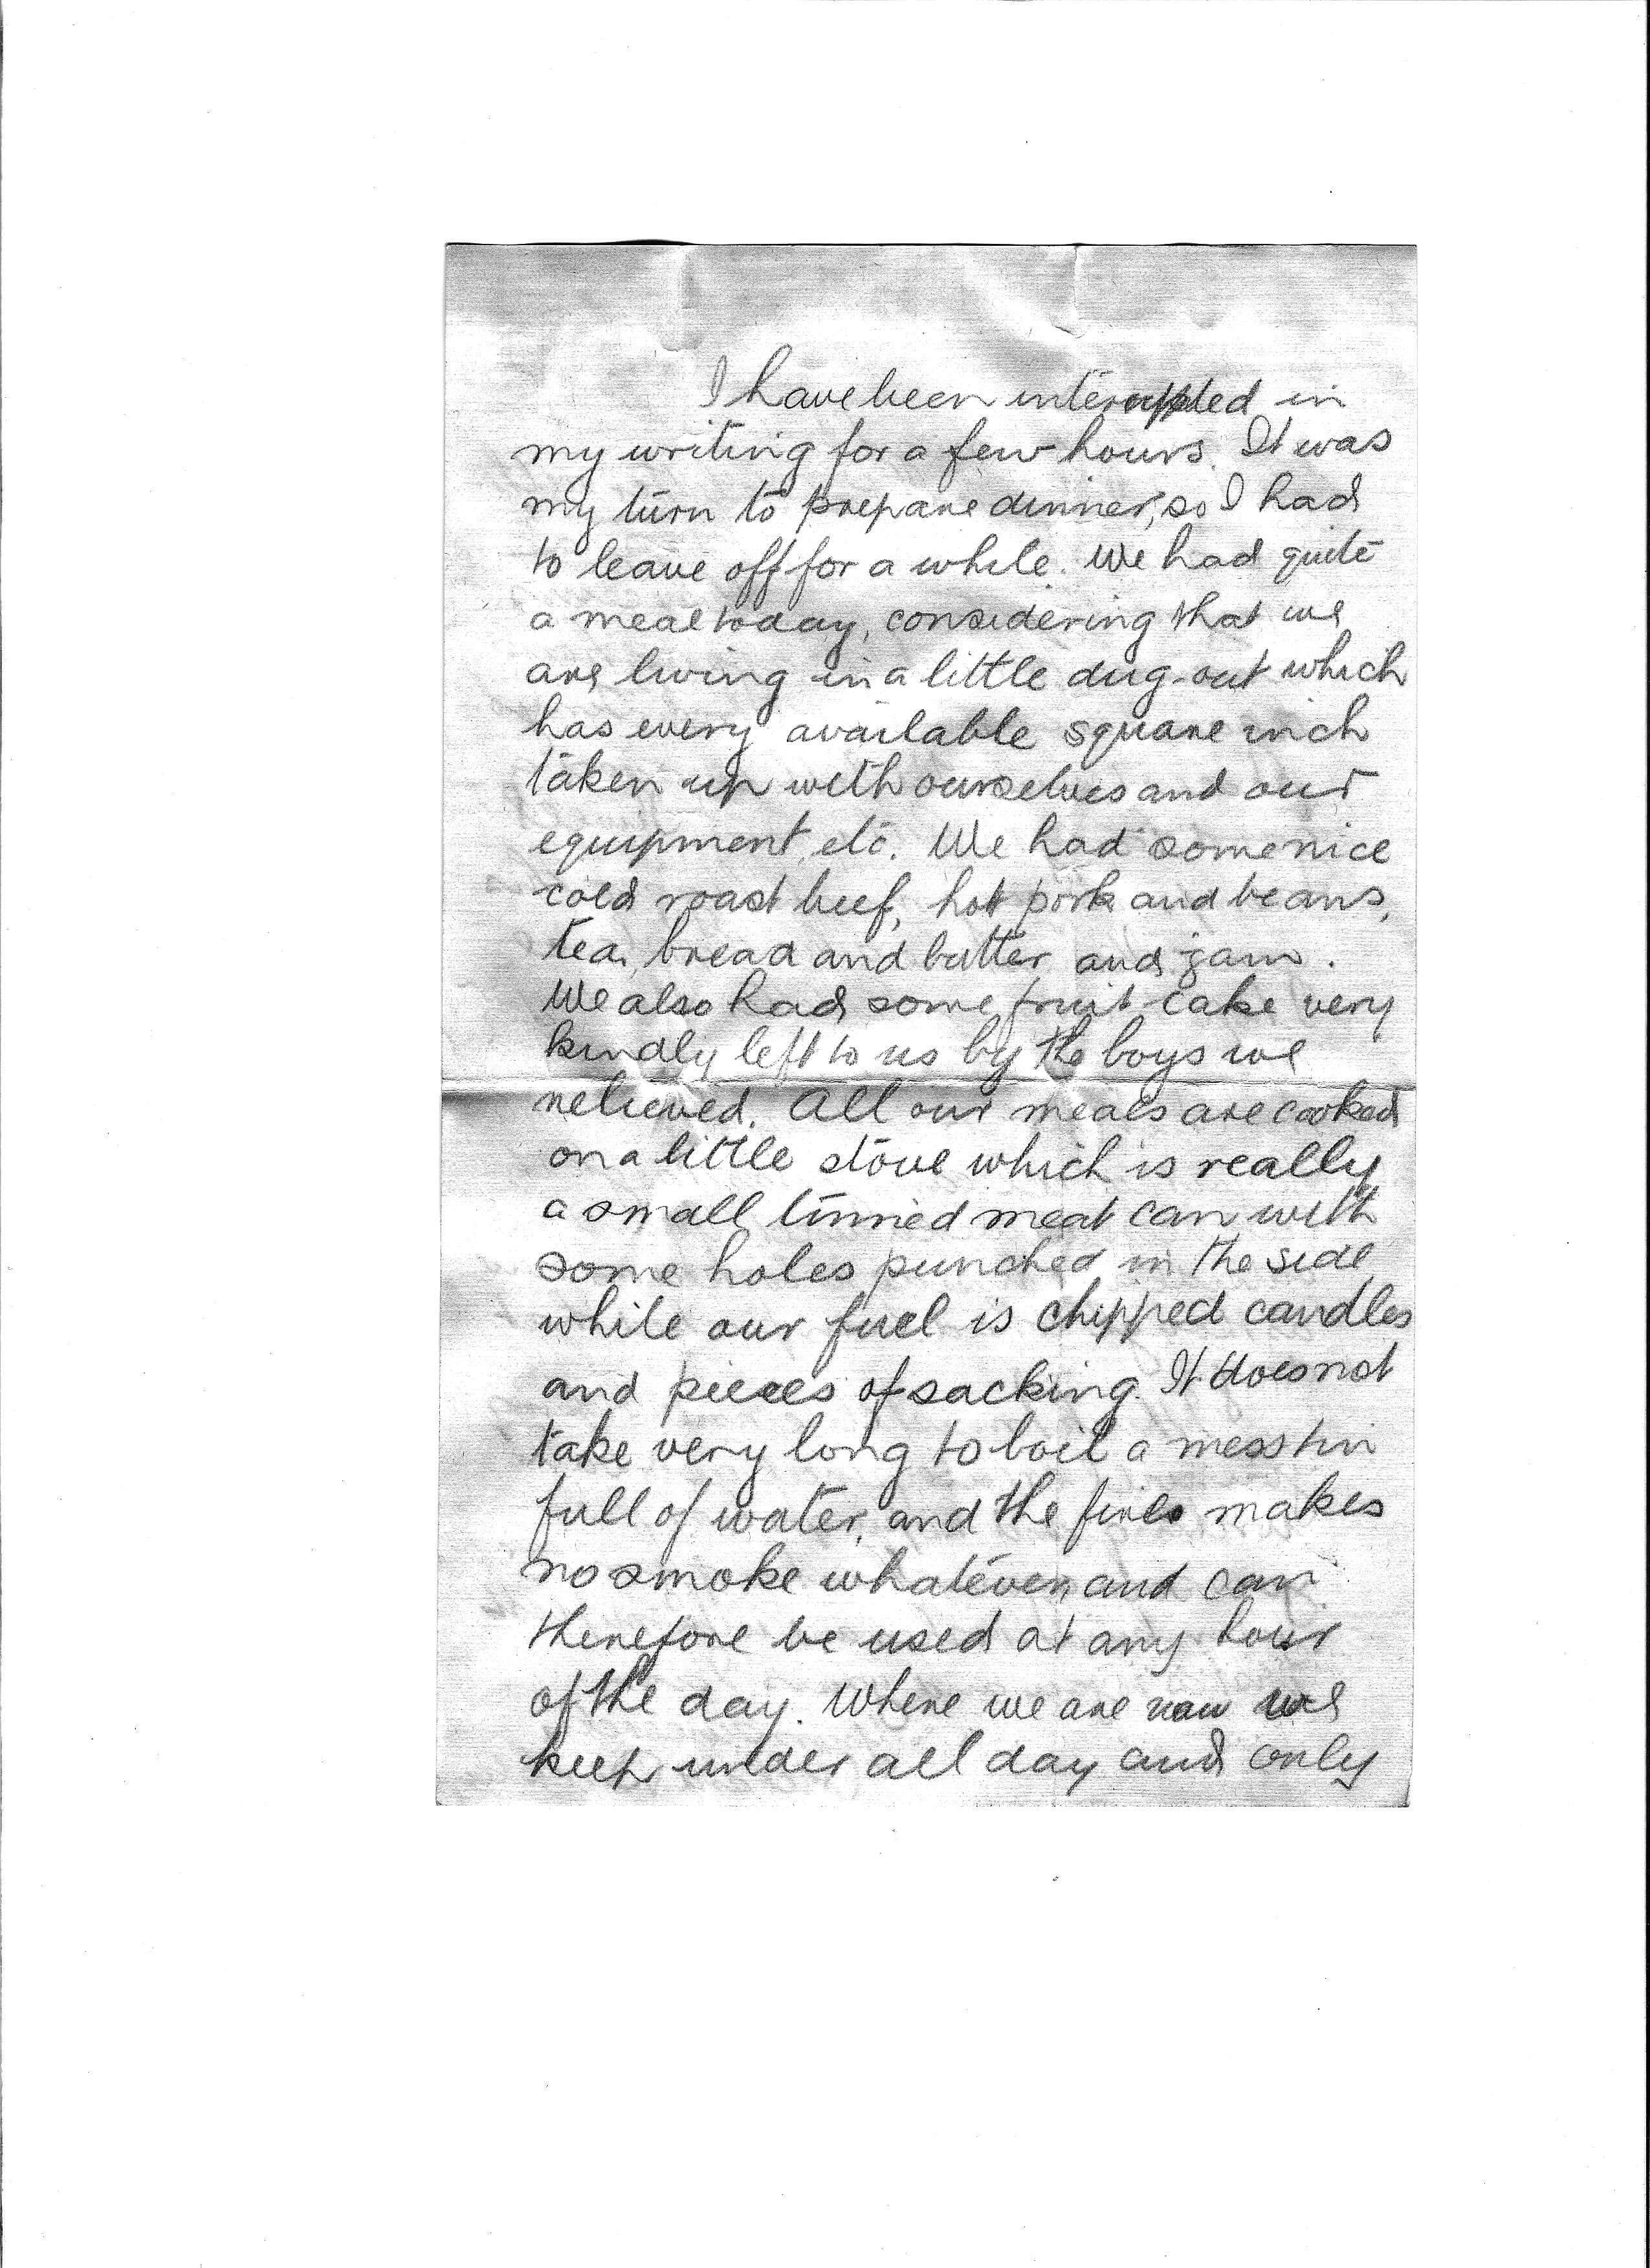 I have been interrupted in
my writing for a few hours. It was
my turn to prepare dinner, so I had
to leave off for a while. We had quite
a meal today, considering that we
are living in a little dug-out which
has every available square inch
taken up with ourselves and our
equipment, etc. We had some nice
cold roast beef, hot pork and beans,
tea, bread and butter and jam.
We also had some fruit-cake very
kindly left to us by the boys we
relieved. All our meals are cooked
on a little stove which is really
a small tinned meat can with
some holes punched in the side
while our fuel is chipped candles
and pieces of sacking. It does not
take very long to boil a mess tin
full of water, and the fires makes
no smoke whatever, and can
therefore be used at any hour
of the day. Where we are now we
keep under all day and only